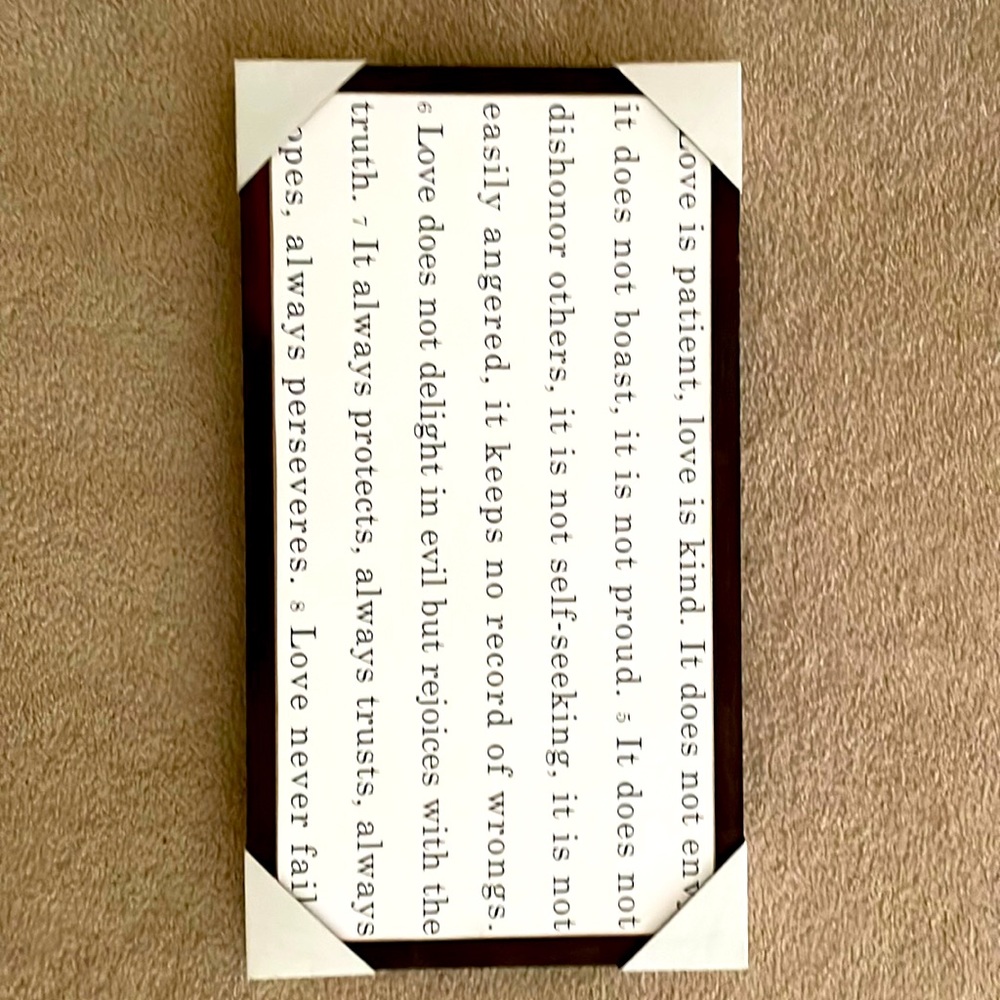 Love is patient, love is kind. It does not envy
it does not boast, it is not proud. 5 It does not
dishonor others, it is not self-seeking, it is not
easily angered, it keeps no record of wrongs.
6 Love does not delight in evil but rejoices with the
truth. 7 It always protects, always trusts, always
opes, always perseveres. 8 Love never fail